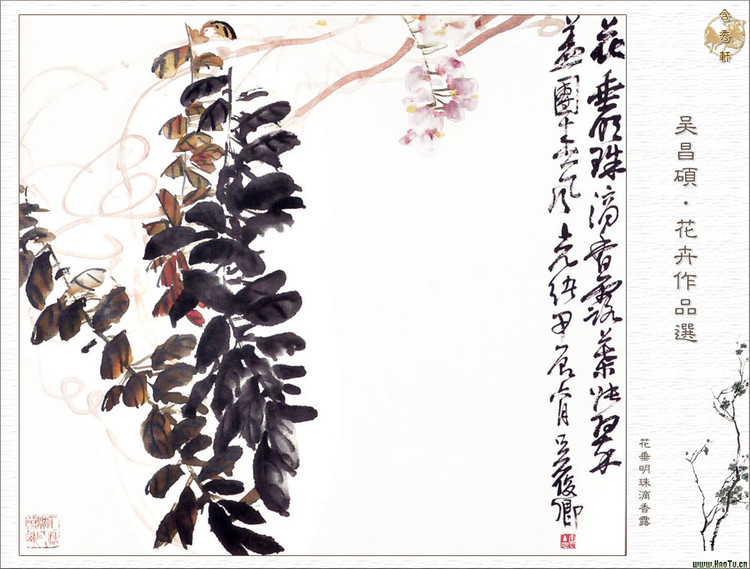 含秀軒
吴昌碩·花卉作品選
花垂明珠滴香露
花垂明珠滴香露葉張翠
蓋團春風光緒甲辰六月吴俊卿
www.HaoTu.cn